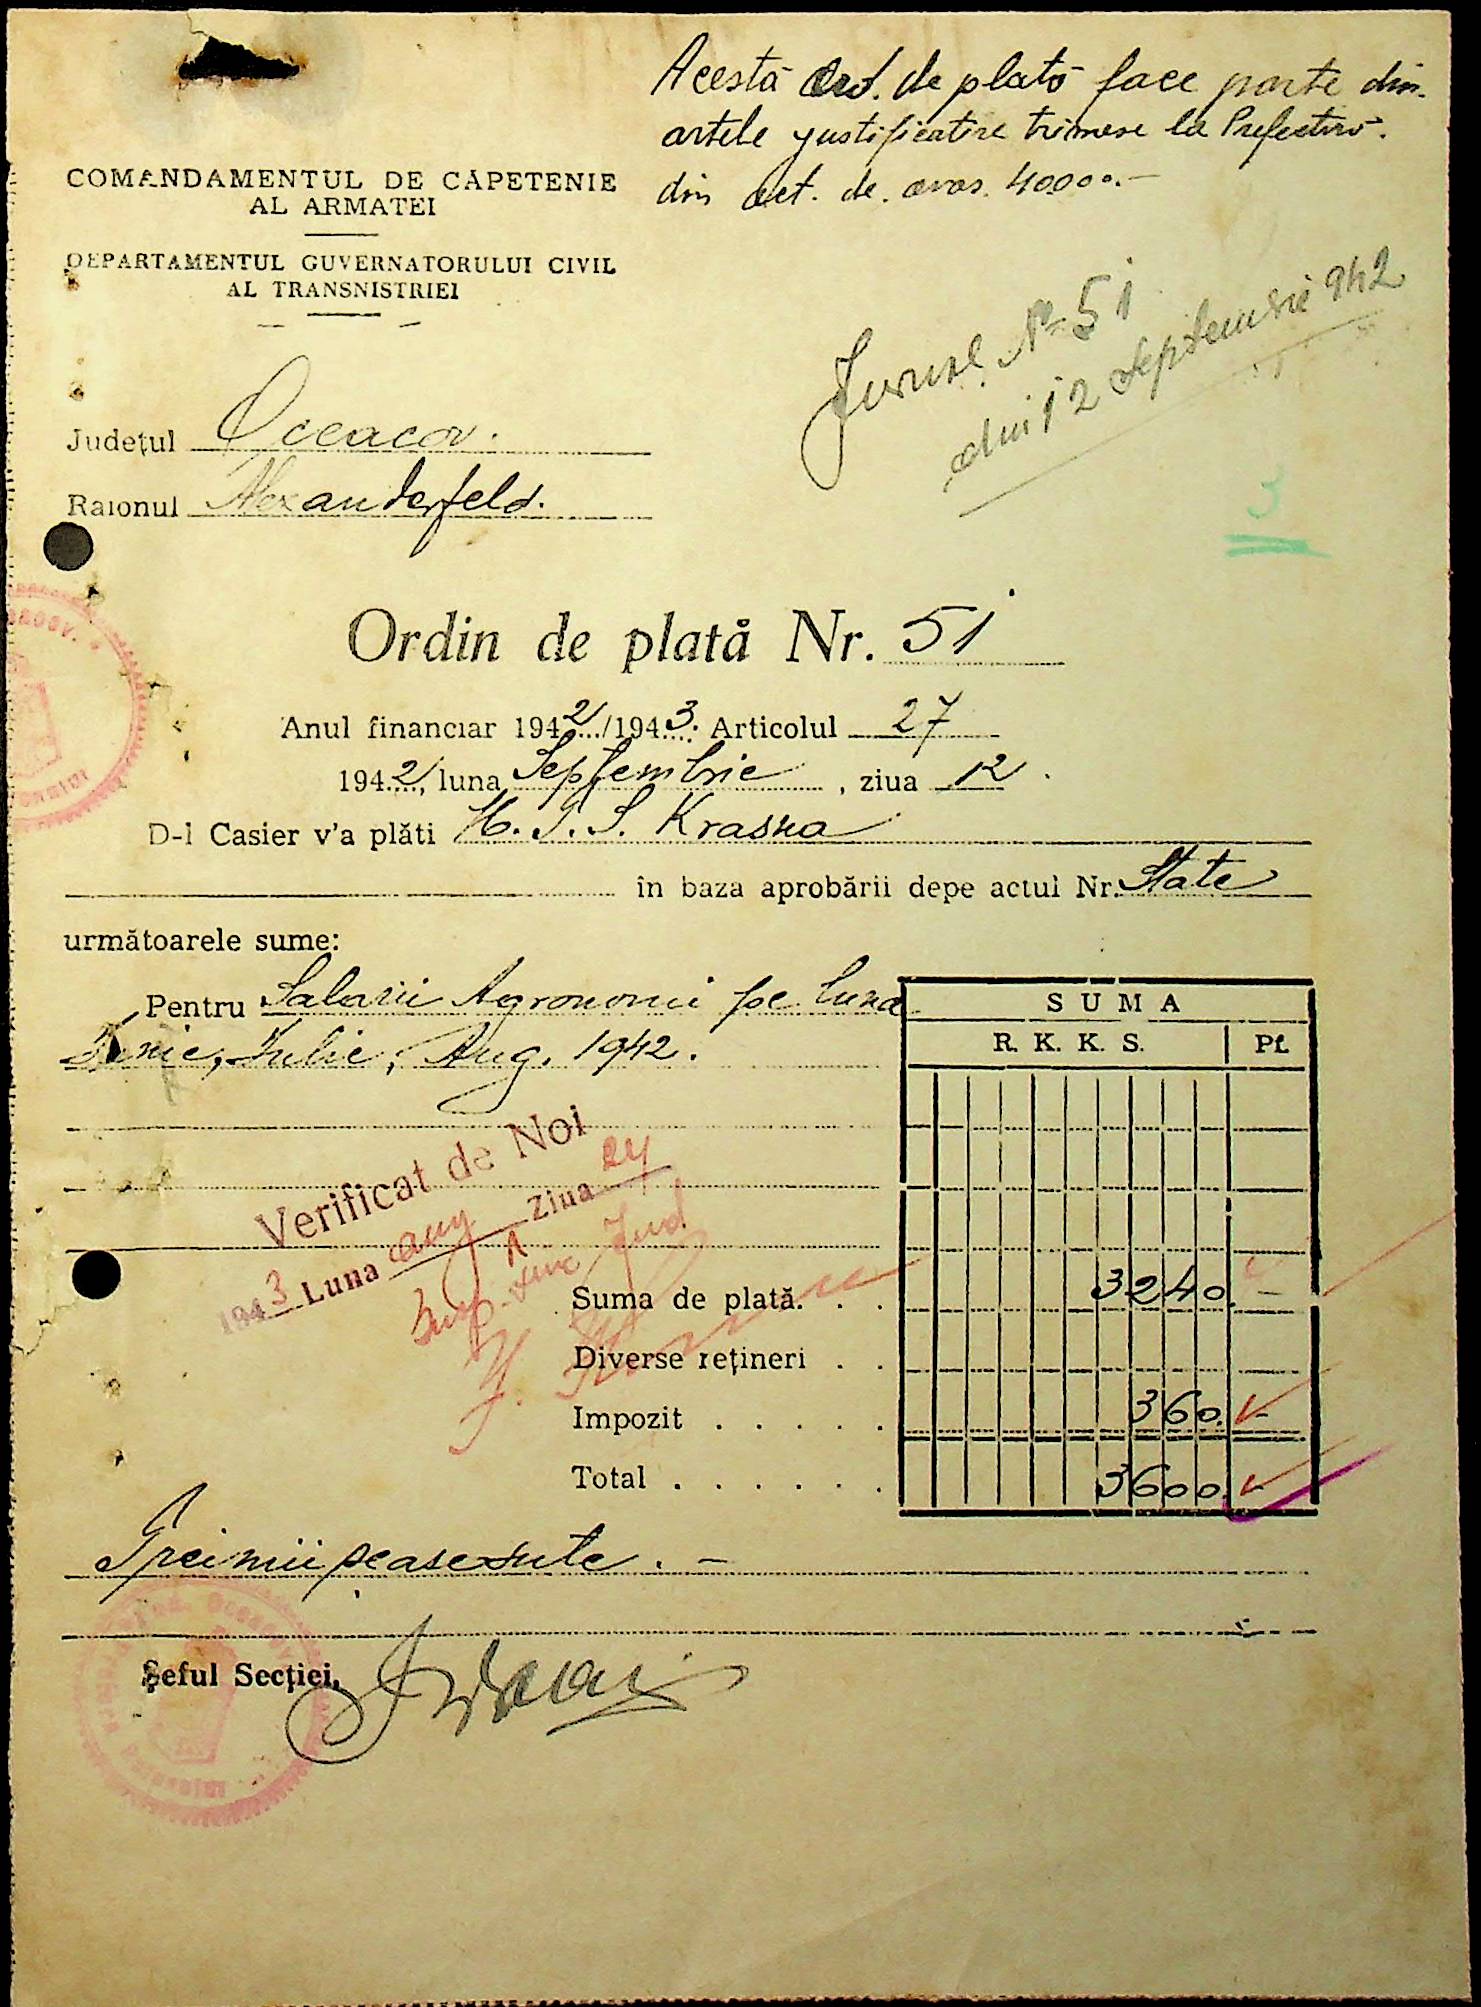 Acestă Ord. de plată face parte din
actele justificative trimese la Prefectură
din act. de avas. 40000.—
COMANDAMENTUL DE CAPETENIE
AL ARMATEI
DEPARTAMENTUL GUVERNATORULUI CIVIL
AL TRANSNISTRIEI
Jurnal No 51
din 12 Septembrie 942
Județul Oceacov.
Raionul Alexanderfeld.
3
Ordin de plată Nr. 51
Anul financiar 1942/1943. Articolul 27
1942, luna Septembrie, ziua 12.
D-l Casier v'a plăti H. T. S. Krasna
în baza aprobării depe actul Nr. State
următoarele sume:
Pentru Salarii Agronomi pe luna
Iunie, Iulie, Aug. 1942.
SUMA
R. K. K. S. Pf.
Verificat de Noi
1943 Luna aug Ziua 24
Suma de plată. . . 3240.—
Diverse rețineri . .
Impozit . . . . . 360.—
Total . . . . . . 3600.—
Treimii șeasesute.—
Șeful Secției,